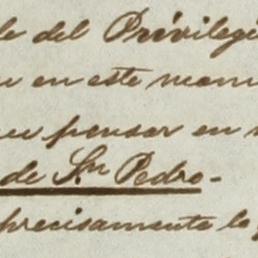 le del Privilegi
en este mem
pensar en
de Sn Pedro-
precisamente lo